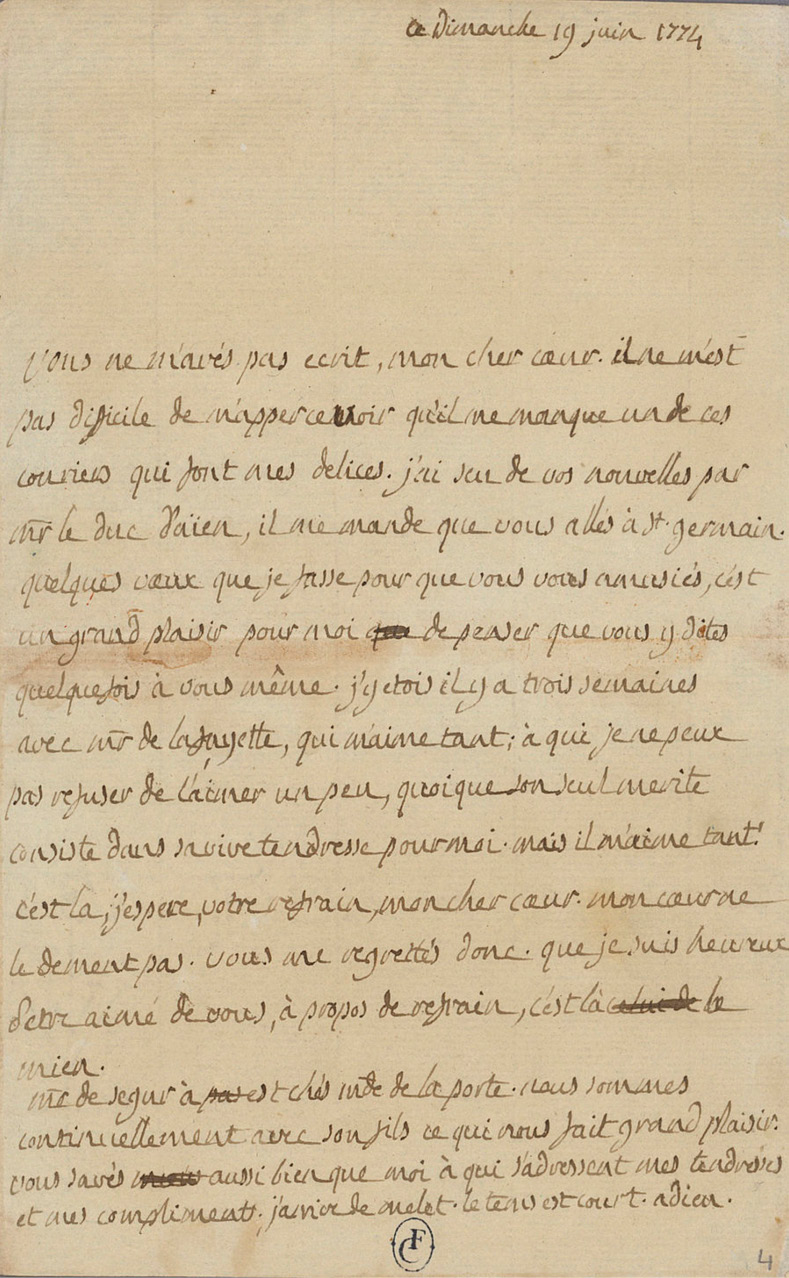 ce Dimanche 19 juin 1774
vous ne m'avés pas ecrit, mon cher cœur. il ne m'est
pas difficile de m'appercevoir qu'il me manque un de ces
couriers qui font mes delices. j'ai seu de vos nouvelles par
mr le duc d'aïen, il me mande que vous allés à st. germain.
quelques vœux que je fasse pour que vous vous amusiés, c'est
un grand plaisir pour moi de penser que vous y dites
quelquefois à vous même. j'y etois il y a trois semaines
avec mr de lafayette, qui m'aime tant; à qui je ne peux
pas refuser de l'aimer un peu, quoique son seul merite
consiste dans sa vive tendresse pour moi. mais il m'aime tant!
c'est la, j'espere, votre refrain, mon cher cœur. mon cœur ne
le dement pas. vous me regrettés donc. que je suis heureux
d'etre aimé de vous, à propos de refrain, c'est là celui de le
mien.
mr de segur à pas est chés mde de la porte. nous sommes
continuellement avec son fils ce qui nous fait grand plaisir.
vous savés aussi bien que moi à qui s'adressent mes tendresses
et mes compliments. j'arrive de melet. le tems est court. adieu.
CF
4